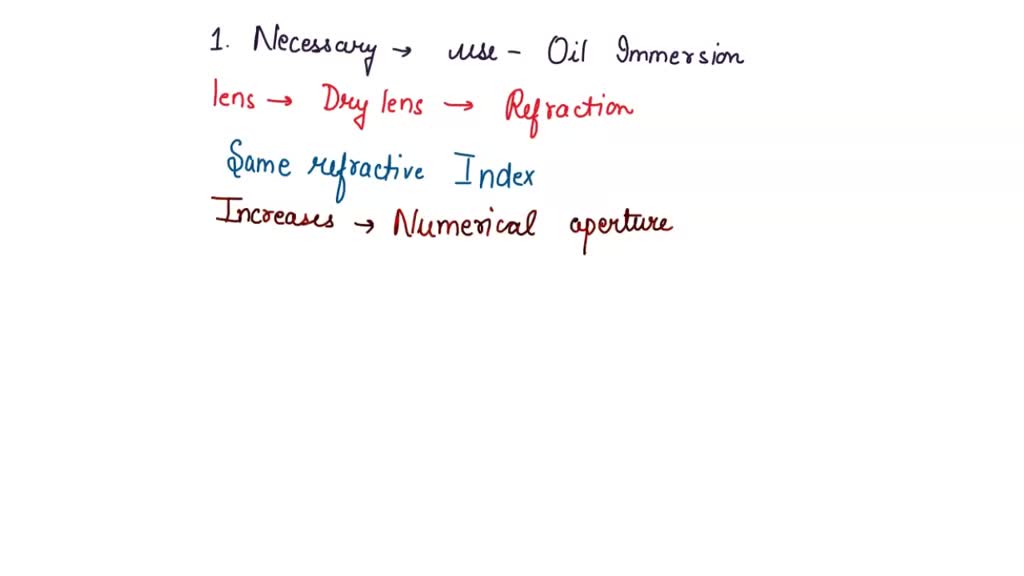 1. Necessary → use - Oil Immersion
lens → Dry lens → Refraction
Same refractive Index
Increases → Numerical aperture